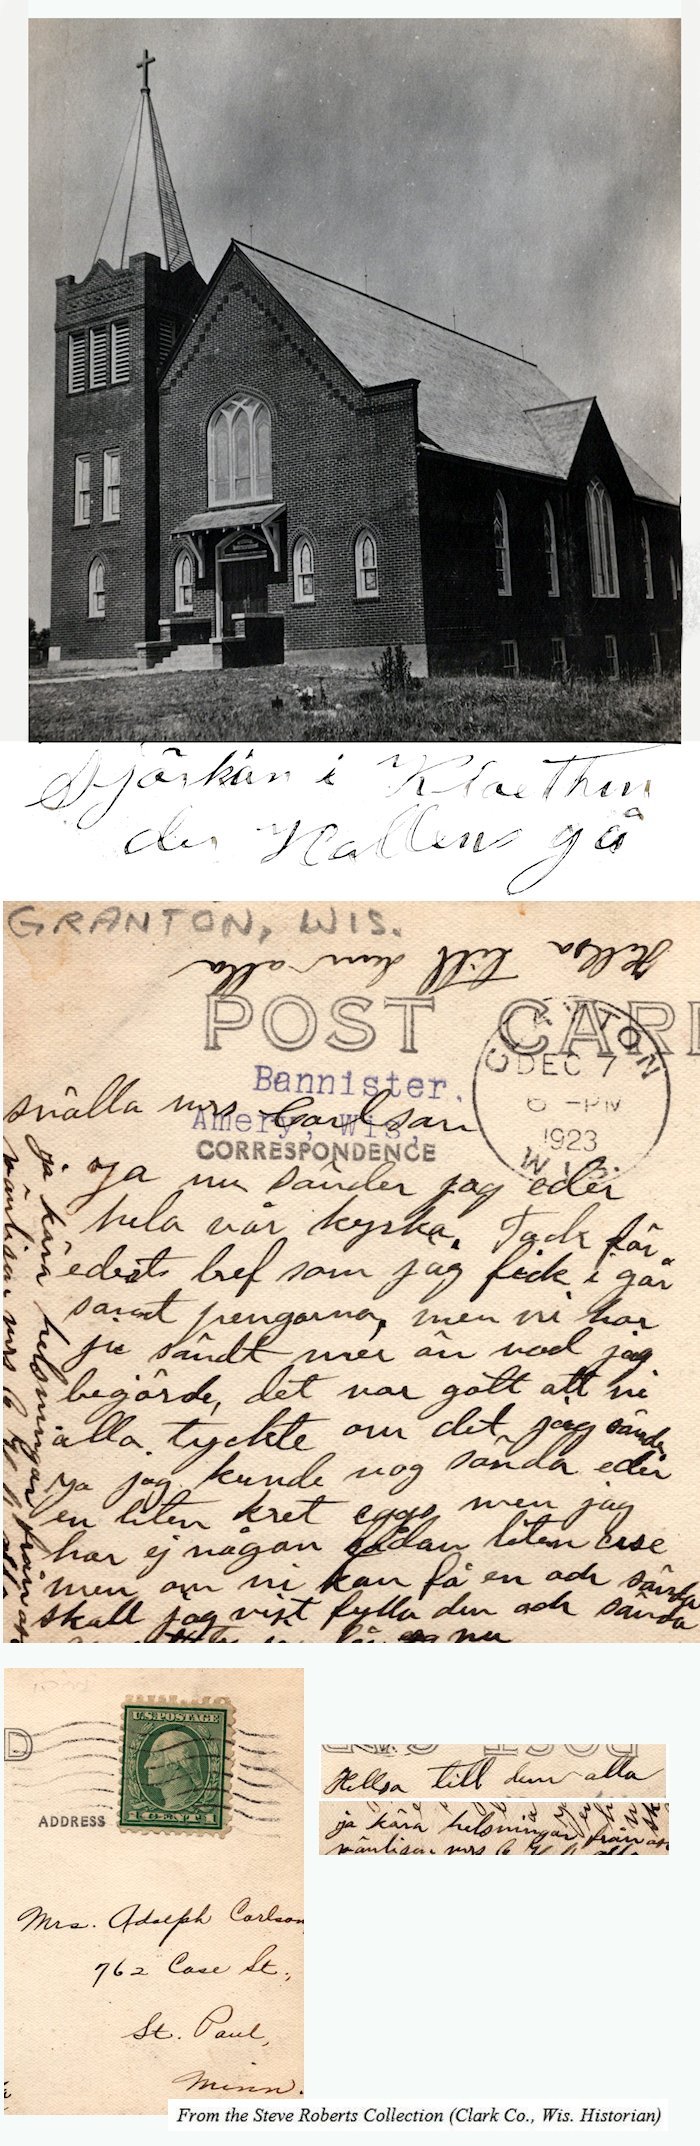 i
der Hallens gå
GRANTON, WIS.
Hellsa till dem alla
POST CARD
Bannister.
Amery, Wis.
CORRESPONDENCE
DEC 7
6 - PM
1923
WIS.
snälla mrs Carlson
Ja nu sänder jag eder
hela vår kyrka. Tack för
ederts bref som jag fick i går
samt pengarna, men ni har
ju sändt mer än vad jag
begärde, det var gött att ni
alla tyckte om det jag sände
ja jag kunde nog sända eder
en liten kret eggs men jag
har ej någon sådan liten case
men om ni kan få en och sända
skall jag visst fylla den och sända
nu
ja kära helsningar från oss
vänligen mrs
alla
D
U.S. POSTAGE
1 CENT 1
ADDRESS
Mrs. Adolph Carlson,
762 Case St.,
St. Paul,
Minn.
POST CARD
Hellsa till dem alla
ja kära helsningar från oss
vänligen mrs
alla
From the Steve Roberts Collection (Clark Co., Wis. Historian)